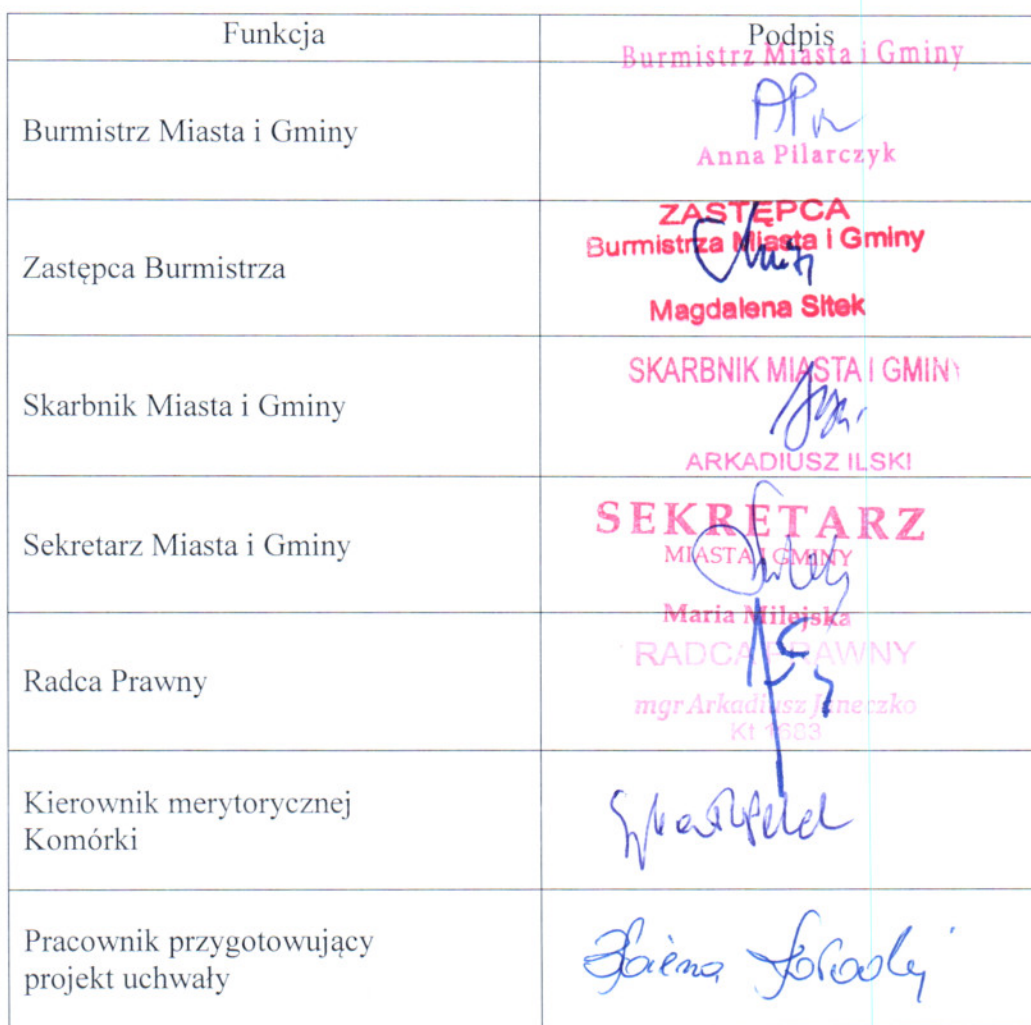 Funkcja Podpis
Burmistrz Miasta i Gminy
Burmistrz Miasta i Gminy
Anna Pilarczyk
ZASTĘPCA
Burmistrza Miasta i Gminy
Zastępca Burmistrza
Magdalena Sitek
SKARBNIK MIASTA I GMINY
Skarbnik Miasta i Gminy
ARKADIUSZ ILSKI
SEKRETARZ
MIASTA I GMINY
Sekretarz Miasta i Gminy
Maria Milejska
RADCA PRAWNY
Radca Prawny
mgr Arkadiusz Janeczko
Kt 1683
Kierownik merytorycznej
Komórki
Pracownik przygotowujący
projekt uchwały